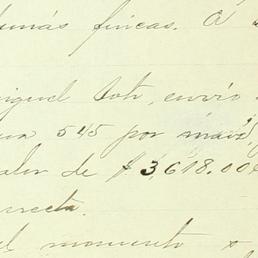 demás fincas. A
Miguel Soto, envío
una 545 por
valor de $ 3,618.00
recta.
el momento